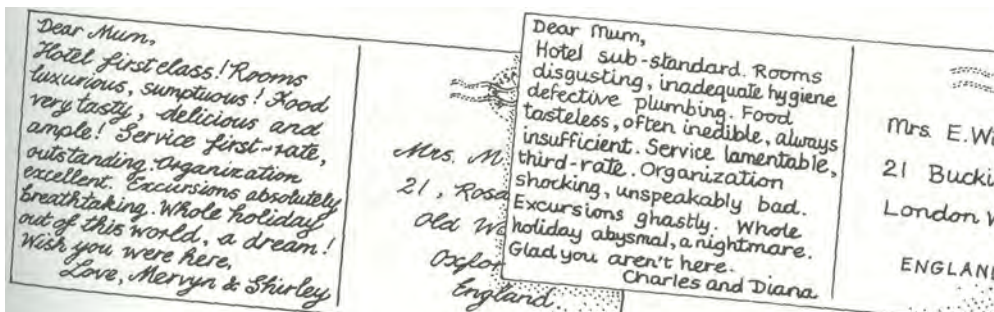 Dear Mum,
Hotel first class! Rooms
luxurious, sumptuous! Food
very tasty, delicious and
ample! Service first-rate,
outstanding. Organization
excellent. Excursions absolutely
breathtaking. Whole holiday
out of this world, a dream!
Wish you were here,
Love, Mervyn & Shirley
Mrs. M.
21, Rosa
Old
Oxfo
England
Dear Mum,
Hotel sub-standard. Rooms
disgusting, inadequate hygiene
defective plumbing. Food
tasteless, often inedible, always
insufficient. Service lamentable,
third-rate. Organization
shocking, unspeakably bad.
Excursions ghastly. Whole
holiday abysmal, a nightmare.
Glad you aren't here.
Charles and Diana
Mrs. E. Wi
21 Bucki
London
ENGLAN